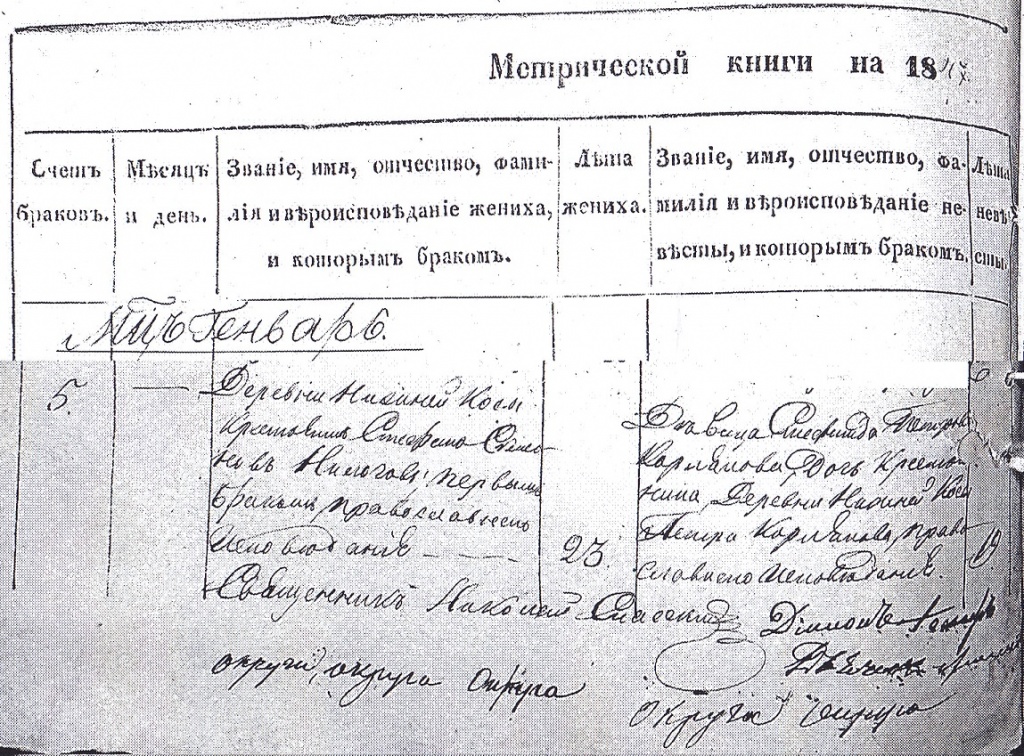 Метрической книги на 1847.
Счетъ браковъ.
Мѣсяцъ и день.
Званіе, имя, отчество, фами-
лія и вѣроисповѣданіе жениха,
и которымъ бракомъ.
Лѣта
жениха.
Званіе, имя, отчество, фа-
милія и вѣроисповѣданіе не-
вѣсты, и которымъ бракомъ.
Лѣта
невѣ
сты.
Мцъ Генварь.
5.
Деревни Нижней Косы
Крестьянинъ Стефанъ Симо-
новъ первымъ
бракомъ, православнаго
исповѣданія
23.
Дѣвица Петрова
Корлякова, Дочь Крестья-
нина Деревни Нижней Косы
Петра Корлякова, право-
славнаго исповѣданія.
19
Священникъ Николай Спасскій
Діаконъ
округи, округа округа
округа округа